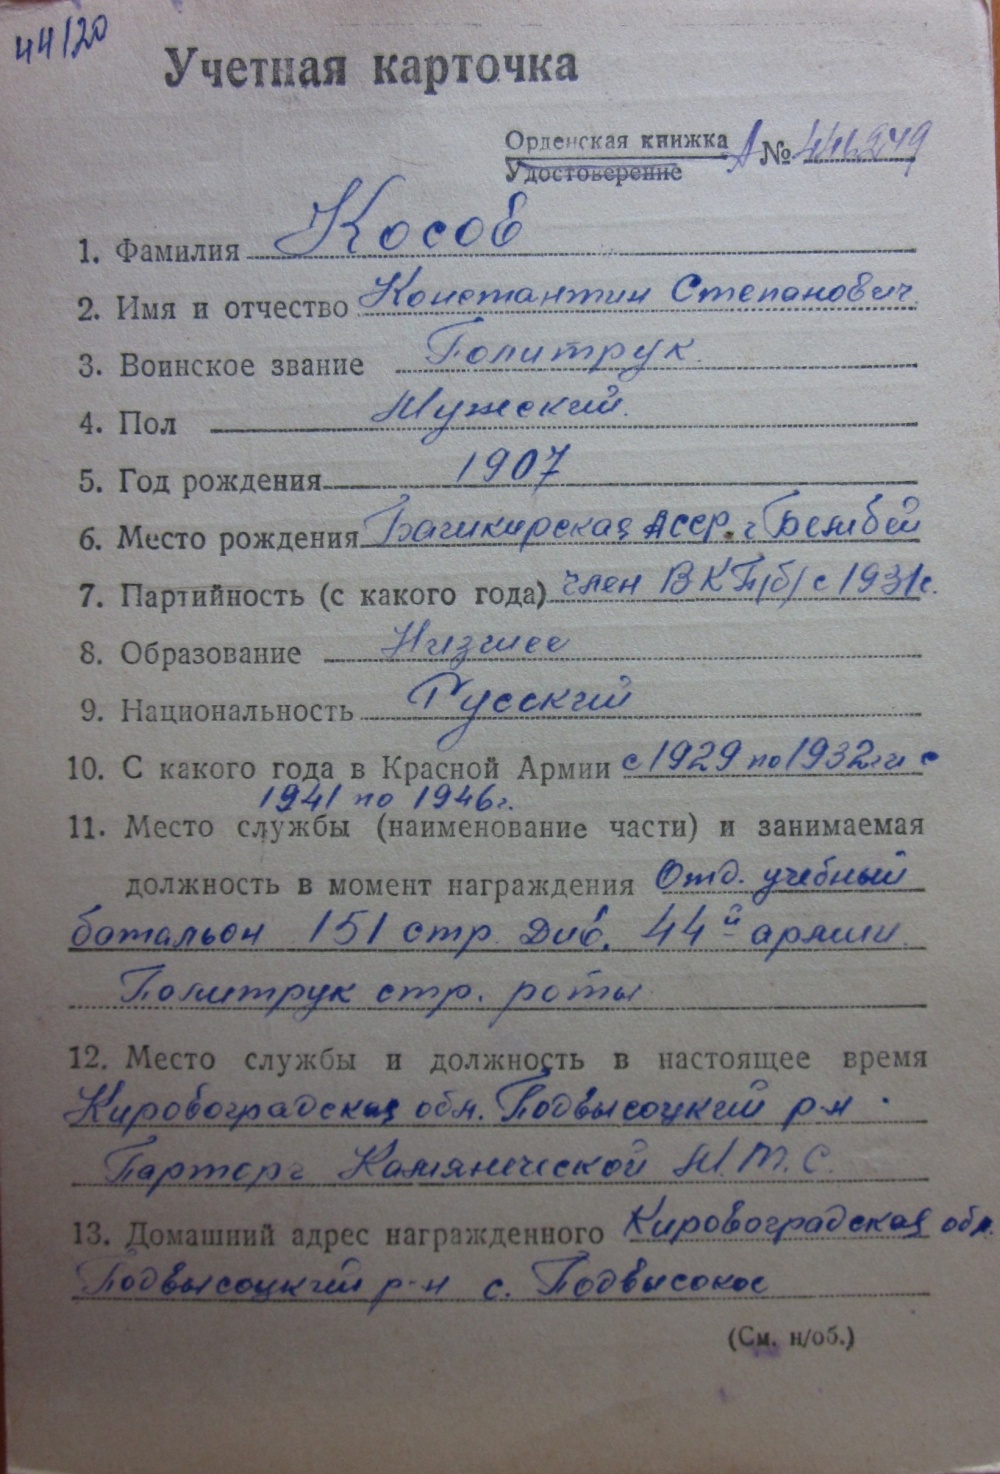 44/20
Учетная карточка
Орденская книжка А №
Удостоверение
1. Фамилия Косов
2. Имя и отчество Константин Степанович
3. Воинское звание Политрук
4. Пол Мужской
5. Год рождения 1907
6. Место рождения Башкирская АССР. г
7. Партийность (с какого года) член ВКП/б/ с 1931г.
8. Образование Низшее
9. Национальность Русский
10. С какого года в Красной Армии с 1929 по 1932г и с
1941 по 1946г.
11. Место службы (наименование части) и занимаемая
должность в момент награждения Отд. учебный
батальон 151 стр. Див. 44й армии
Политрук стр. роты
12. Место службы и должность в настоящее время
Кировоградская обл. Подвысоцкий р-н
Парторг Камянической М.Т.С.
13. Домашний адрес награжденного Кировоградская обл.
Подвысоцкий р-н с. Подвысокое
(См. н/об.)